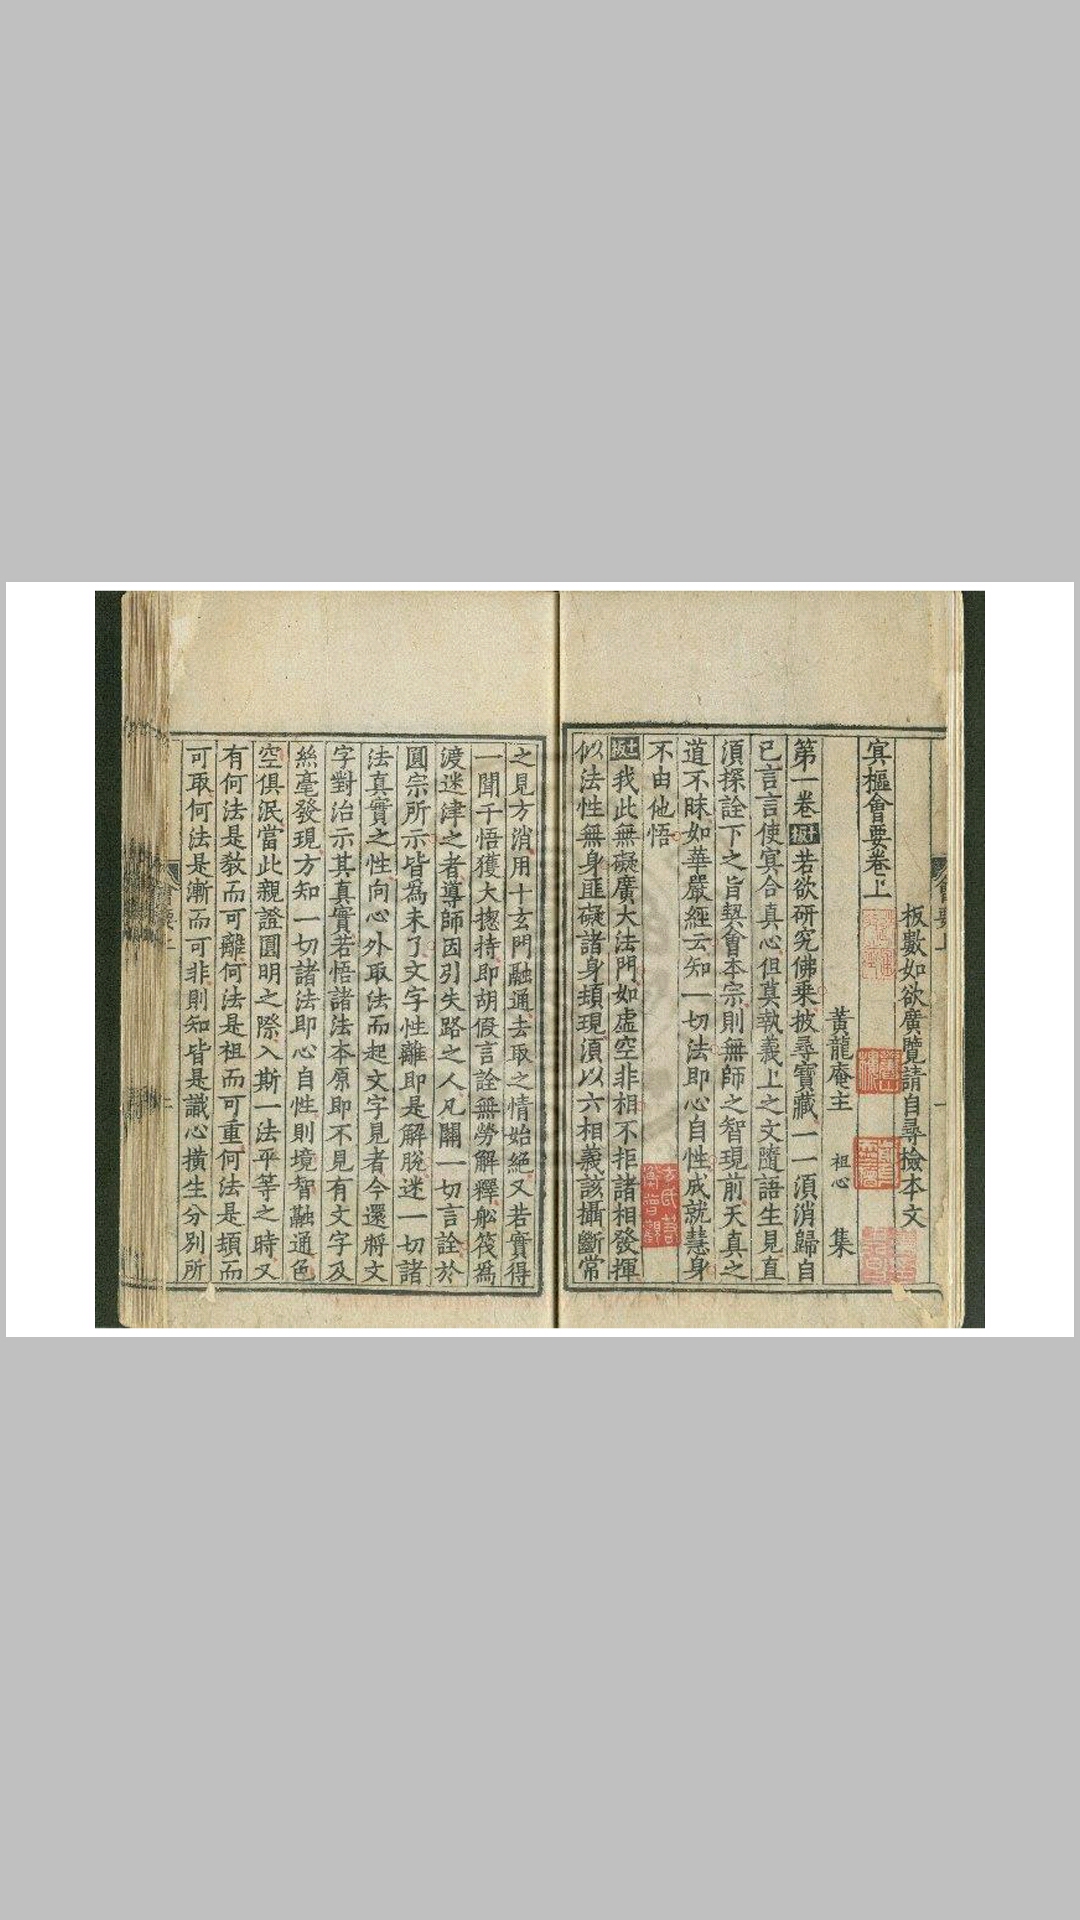 板數如欲廣覽請自尋檢本文
㝠樞會要卷上
黃龍庵主 祖心 集
第一卷 十板 若欲研究佛乗披尋寶藏一一湏消歸自
己言言使㝠合真心但莫執義上之文隨語生見直
湏探詮下之旨契會本宗則無師之智現前天真之
道不昧如華嚴經云知一切法即心自性成就慧身
不由他悟
十一板 我此無礙廣大法門如虛空非相不拒諸相發揮
似法性無身匪礙諸身頓現湏以六相義該攝斷常
之見方消用十玄門融通去取之情始絕又若實得
一聞千悟獲大揔持即胡假言詮無勞解釋舩筏為
渡迷津之者導師因引失路之人凡關一切言詮於
圓宗所示皆為未了文字性離即是解脫迷一切諸
法真實之性向心外取法而起文字見者今還將文
字對治示其真實若悟諸法本原即不見有文字及
絲毫發現方知一切諸法即心自性則境智融通色
空俱泯當此親證圓明之際入斯一法平等之時又
有何法是教而可離何法是祖而可重何法是頓而
可取何法是漸而可非則知皆是識心橫生分別所